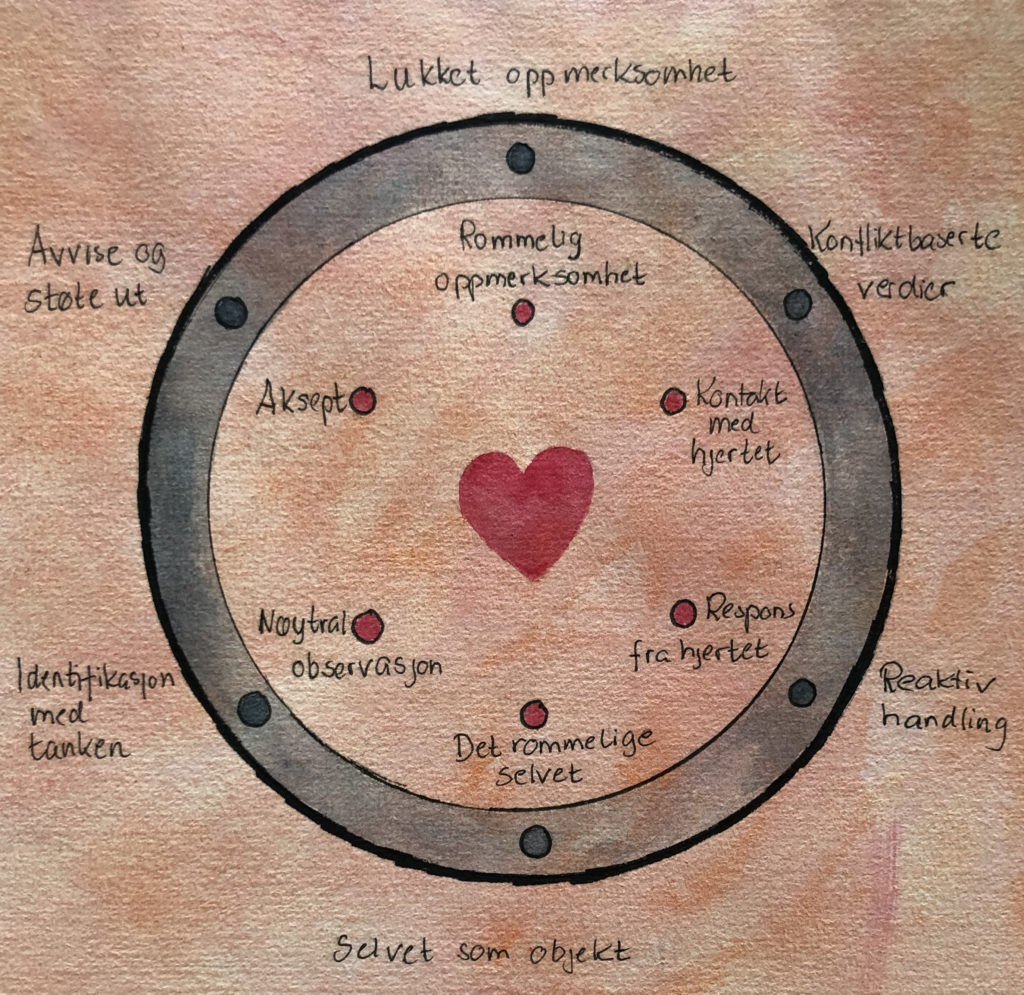 Lukket oppmerksomhet
Avvise og
støte ut
Konfliktbaserte
verdier
Rommelig
oppmerksomhet
Aksept
Kontakt
med
hjertet
Nøytral
observasjon
Respons
fra hjertet
Identifikasjon
med
tanken
Reaktiv
handling
Det rommelige
selvet
Selvet som objekt